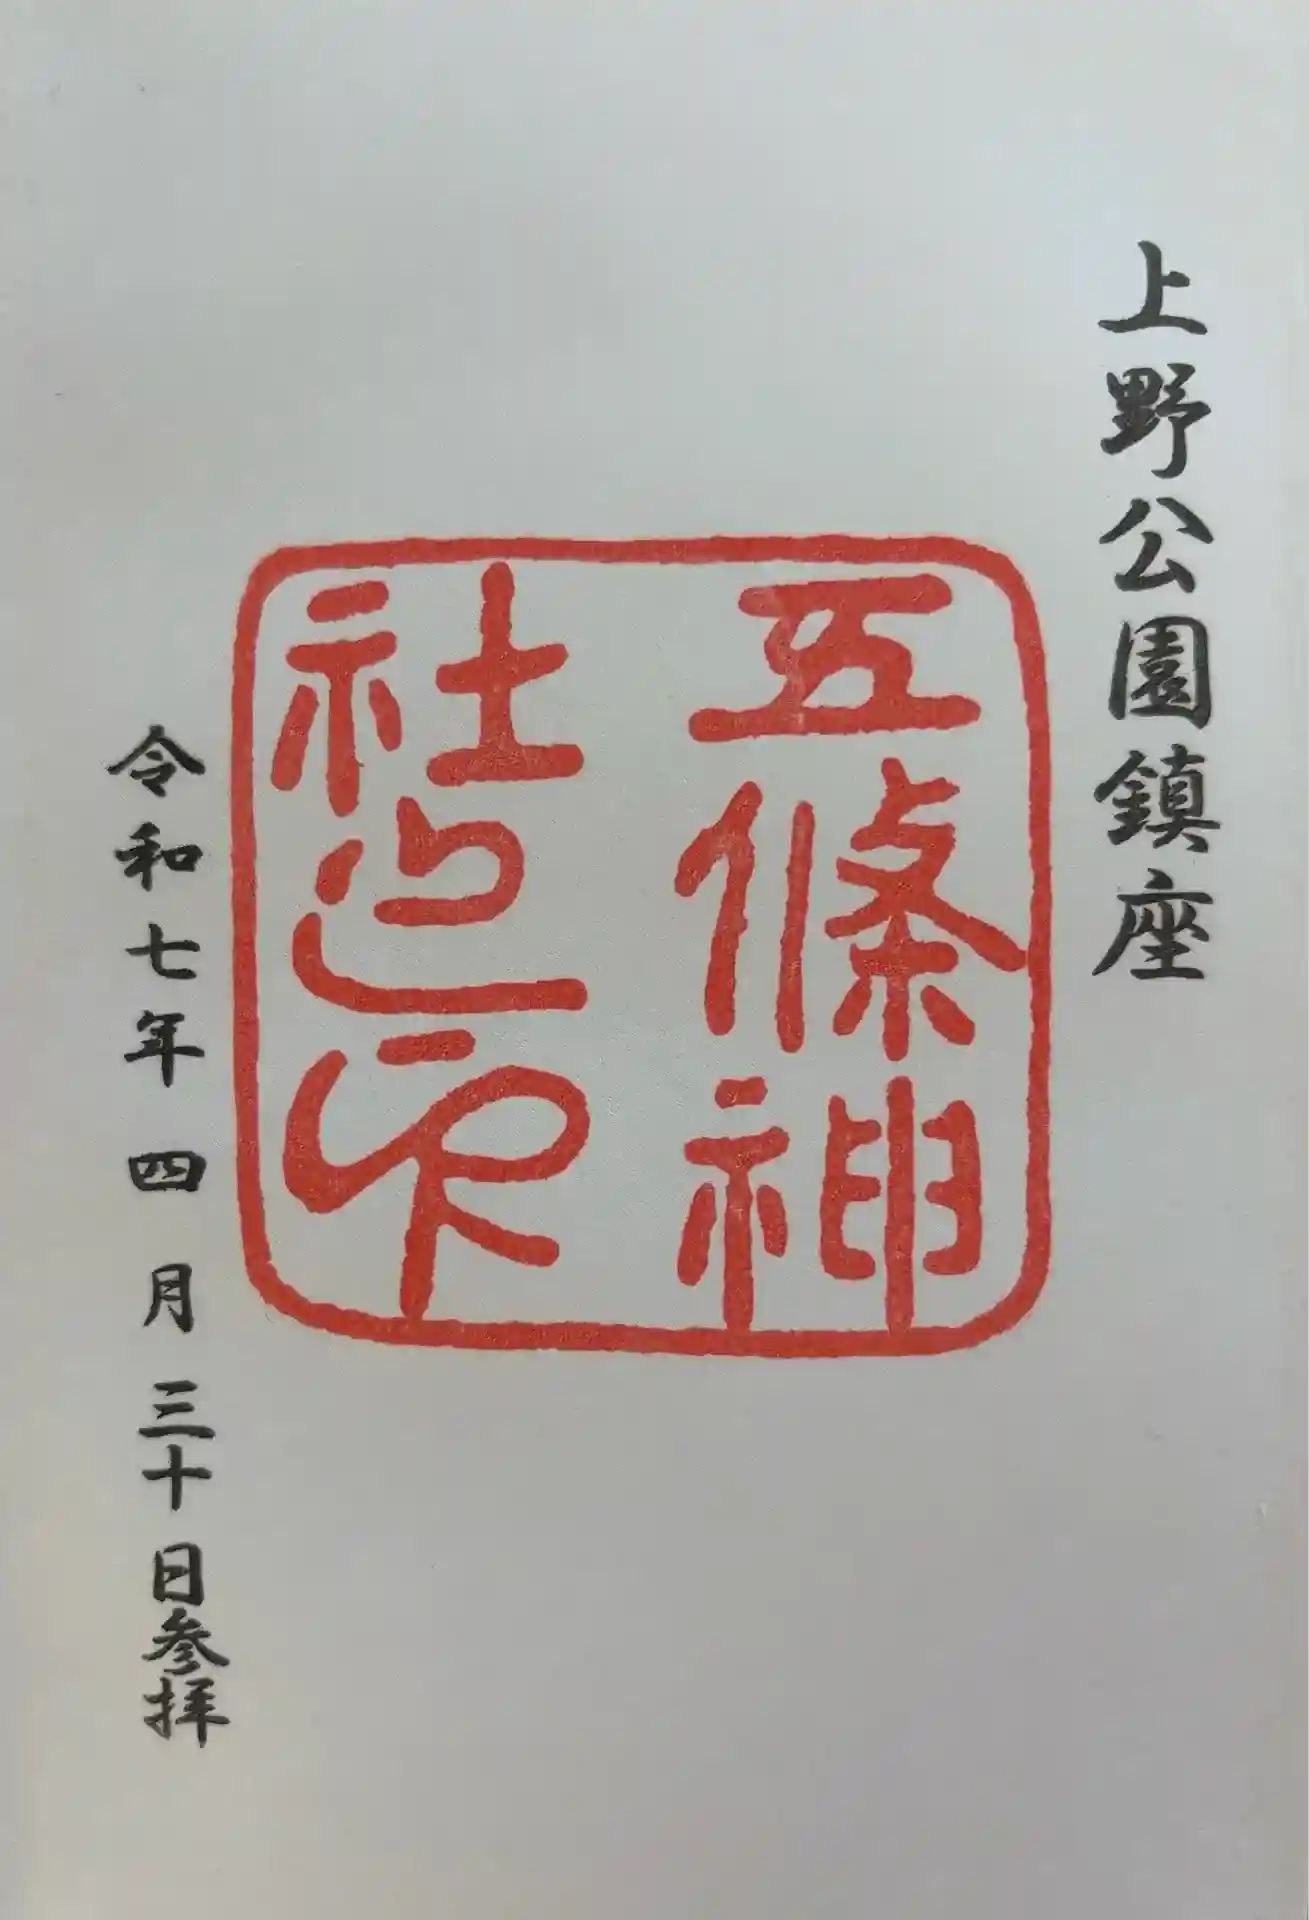 上野公園鎮座
五條神
社之印
令和七年四月三十日参拝